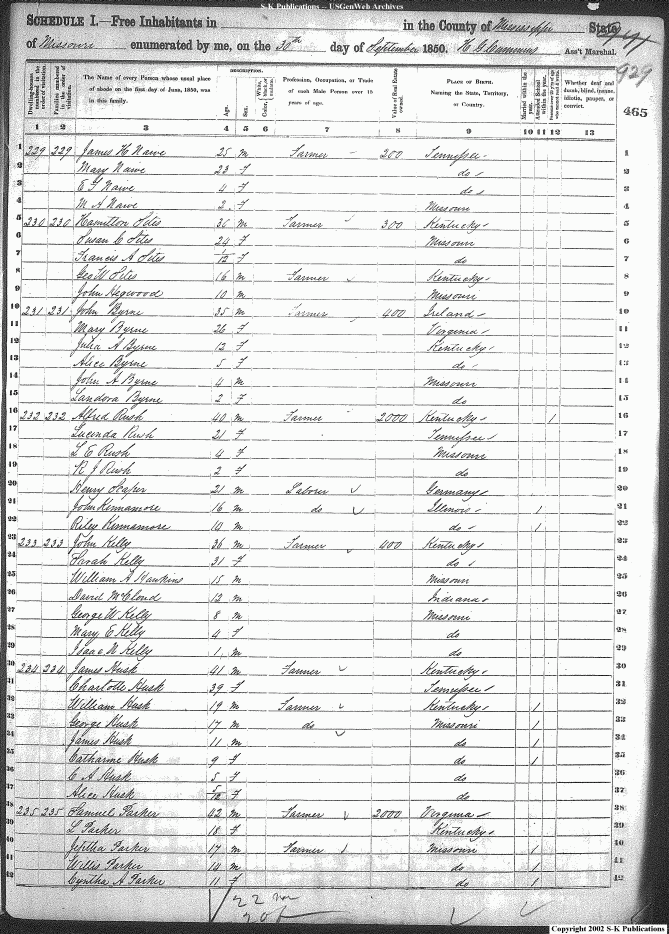 S-K Publications -- USGenWeb Archives
SCHEDULE I.—Free Inhabitants in in the County of Mississippi State
of Missouri enumerated by me, on the 30th day of September 1850. Ass't Marshal.
929
465
Dwelling-houses numbered in the order of visitation.
Families numbered in the order of visitation.
The Name of every Person whose usual place of abode on the first day of June, 1850, was in this family.
DESCRIPTION.
Age.
Sex.
Color, White, black, or mulatto.
Profession, Occupation, or Trade of each Male Person over 15 years of age.
Value of Real Estate owned.
PLACE OF BIRTH. Naming the State, Territory, or Country.
Married within the year.
Attended School within the year.
Whether deaf and dumb, blind, insane, idiotic, pauper, or convict.
1 2 3 4 5 6 7 8 9 10 11 12 13
1 229 229 James H Nawe 25 m Farmer 200 Tennessee 1
2 Mary Nawe 23 f do 2
3 E T Nawe 4 f do 3
4 M A Nawe 2 f Missouri 4
5 230 230 Hamilton Sites 36 m Farmer 300 Kentucky 5
6 Susan C Sites 24 f Missouri 6
7 Francis A Sites 1/12 f do 7
8 Geo W Sites 16 m Farmer Kentucky 8
9 John Hegwood 10 m Missouri 9
10 231 231 John Byrne 35 m Farmer 400 Ireland 10
11 Mary Byrne 26 f Virginia 11
12 Julia A Byrne 12 f Kentucky 12
13 Alice Byrne 5 f do 13
14 John A Byrne 4 m Missouri 14
15 Landora Byrne 2 f do 15
16 232 232 Alfred Rush 40 m Farmer 2000 Kentucky 1 16
17 Lucinda Rush 21 f Tennessee 17
18 L E Rush 4 f Missouri 18
19 R J Rush 2 f do 19
20 Henry Scaper 21 m Laborer Germany 20
21 John Kinnamore 16 m do Illinois 1 21
22 Riley Kinnamore 10 m do 1 22
23 233 233 John Kelly 36 m Farmer 400 Kentucky 23
24 Sarah Kelly 31 f do 24
25 William A Hawkins 15 m Missouri 25
26 David McCloud 12 m Indiana 26
27 George W Kelly 8 m Missouri 27
28 Mary E Kelly 4 f do 28
29 Isaac N Kelly 1 m do 29
30 234 234 James Husk 41 m Farmer Kentucky 30
31 Charlotte Husk 39 f Tennessee 31
32 William Husk 19 m Farmer Kentucky 1 32
33 George Husk 17 m do Missouri 1 33
34 James Husk 11 m do 1 34
35 Catharine Husk 9 f do 1 35
36 C A Husk 5 f do 36
37 Alice Husk 5/12 f do 37
38 235 235 Samuel Parker 42 m Farmer 2000 Virginia 38
39 L Parker 18 f Kentucky 39
40 Jeptha Parker 17 m Farmer Missouri 1 40
41 Willis Parker 14 m do 1 41
42 Cyntha A Parker 11 f do 1 42
22 m
20 f
Copyright 2002 S-K Publications